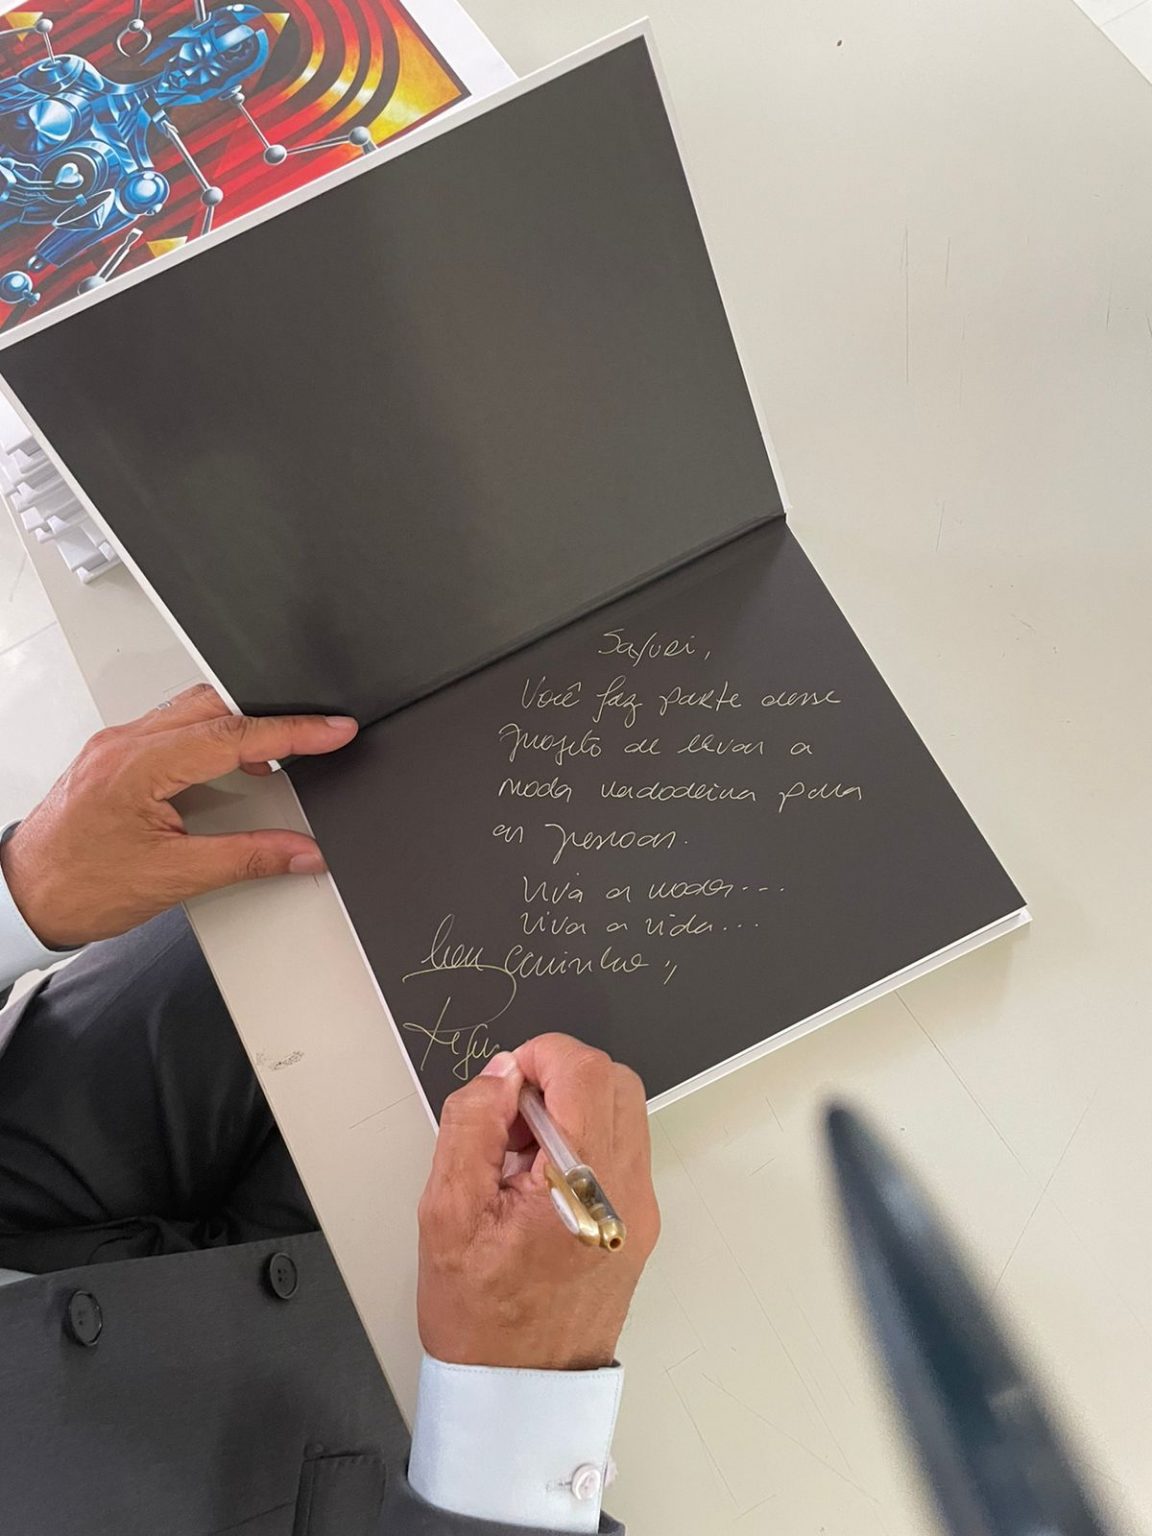 Sayuri,
Você faz parte desse
projeto de levar a
moda verdadeira para
as pessoas.
Viva a moda...
Viva a vida...
Com carinho,